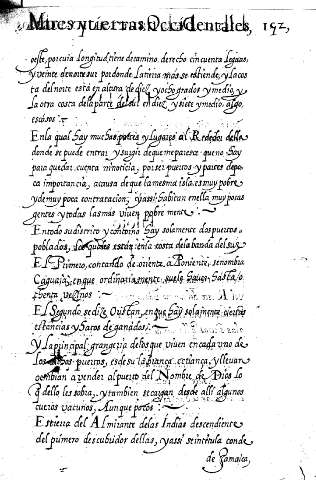 Mares y tierras Occidentales, 192,
oeste, por cuia longitud, tiene de camino, derecho cincuenta leguas,
y veinte de norte sur por donde la tierra mas se estiende, y la cos
ta del norte está en altura de diez y ocho grados y medio, y
la otra costa de la parte del sul en diez y siete y medio, algo
escasos:
En la qual hay muchos puertos y lugares al Rededor della
donde se puede entrar y surgir de que me paresce que no hay
para que dar cuenta ni noticia, por ser puertos y partes de po
ca importancia, a causa de que la mesma isla es muy pobre
y de muy poca contratacion, y assi habitan en ella muy pocas
gentes y todas las mas viven pobremente.
En todo su districto y contorno hay solamente dos puertos
poblados, los quales estan en la costa de la banda del sur
El Primero, contando de oriente, a Poniente, se nombra
Caguaia, en que ordinariamente suele haver hasta o
chenta vecinos:
El Segundo se dize Oristan, en que hay solamente ciertas
estancias y hatos de ganados:
Y la principal grangeria de los que viven en cada uno de
los puertos, es de su labranca, y crianca, y llevar
o embian a vender al puerto del Nombre de Dios lo
q dello les sobra, y tambien se cargan desde alli algunos
cueros vacunos, Aunque pocos:
Es tierra del Almirante de las Indias descendiente
del primero descubridor dellas, y assi se intitula conde
de Jamaica,